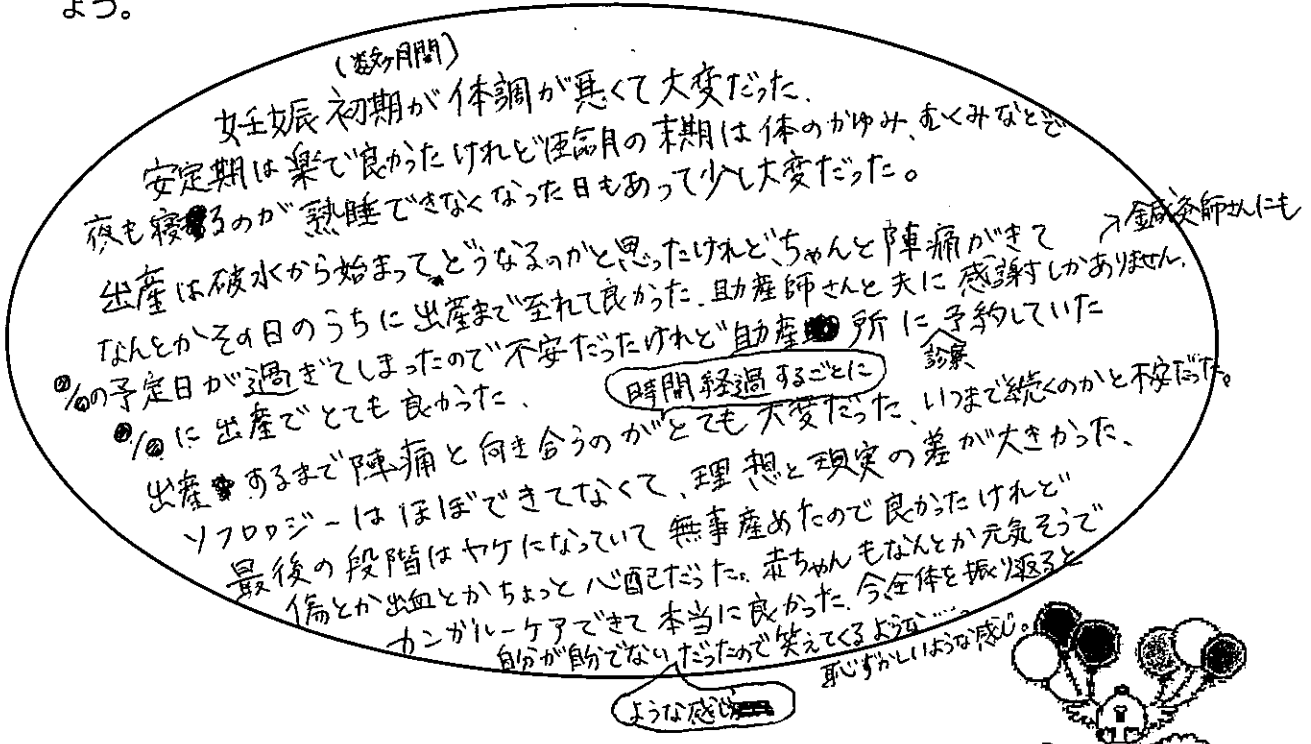 よう。
(数ヶ月間)
妊娠初期が体調が悪くて大変だった.
安定期は楽で良かったけれど臨月の末期は体のかゆみ、むくみなどで
夜も寝るのが熟睡できなくなった日もあって少し大変だった。
出産は破水から始まって、どうなるのかと思ったけれど、ちゃんと陣痛がきて
なんとかその日のうちに出産まで至れて良かった.助産師さんと夫に感謝しかありません.
→鍼灸師さんにも
の予定日が過ぎてしまったので不安だったけれど助産所に予約していた
診察
/に出産でとても良かった.
時間経過するごとに
出産するまで陣痛と向き合うのがとても大変だった、いつまで続くのかと不安だった。
ソフロロジーはほぼできてなくて、理想と現実の差が大きかった、
最後の段階はヤケになっていて無事産めたので良かったけれど
傷とか出血とかちょっと心配だった。赤ちゃんもなんとか元気そうで
カンガルーケアできて本当に良かった.今、全体を振り返ると
自分が自分でないだったので笑えてくるような……
ような感じ
恥ずかしいような感じ。